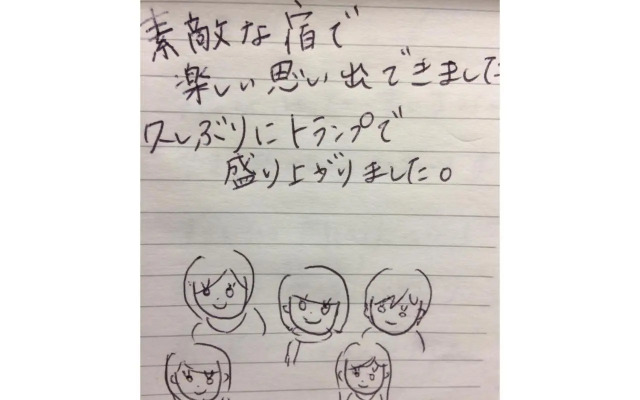 素敵な宿で
楽しい思い出できました
久しぶりにトランプで
盛り上がりました。